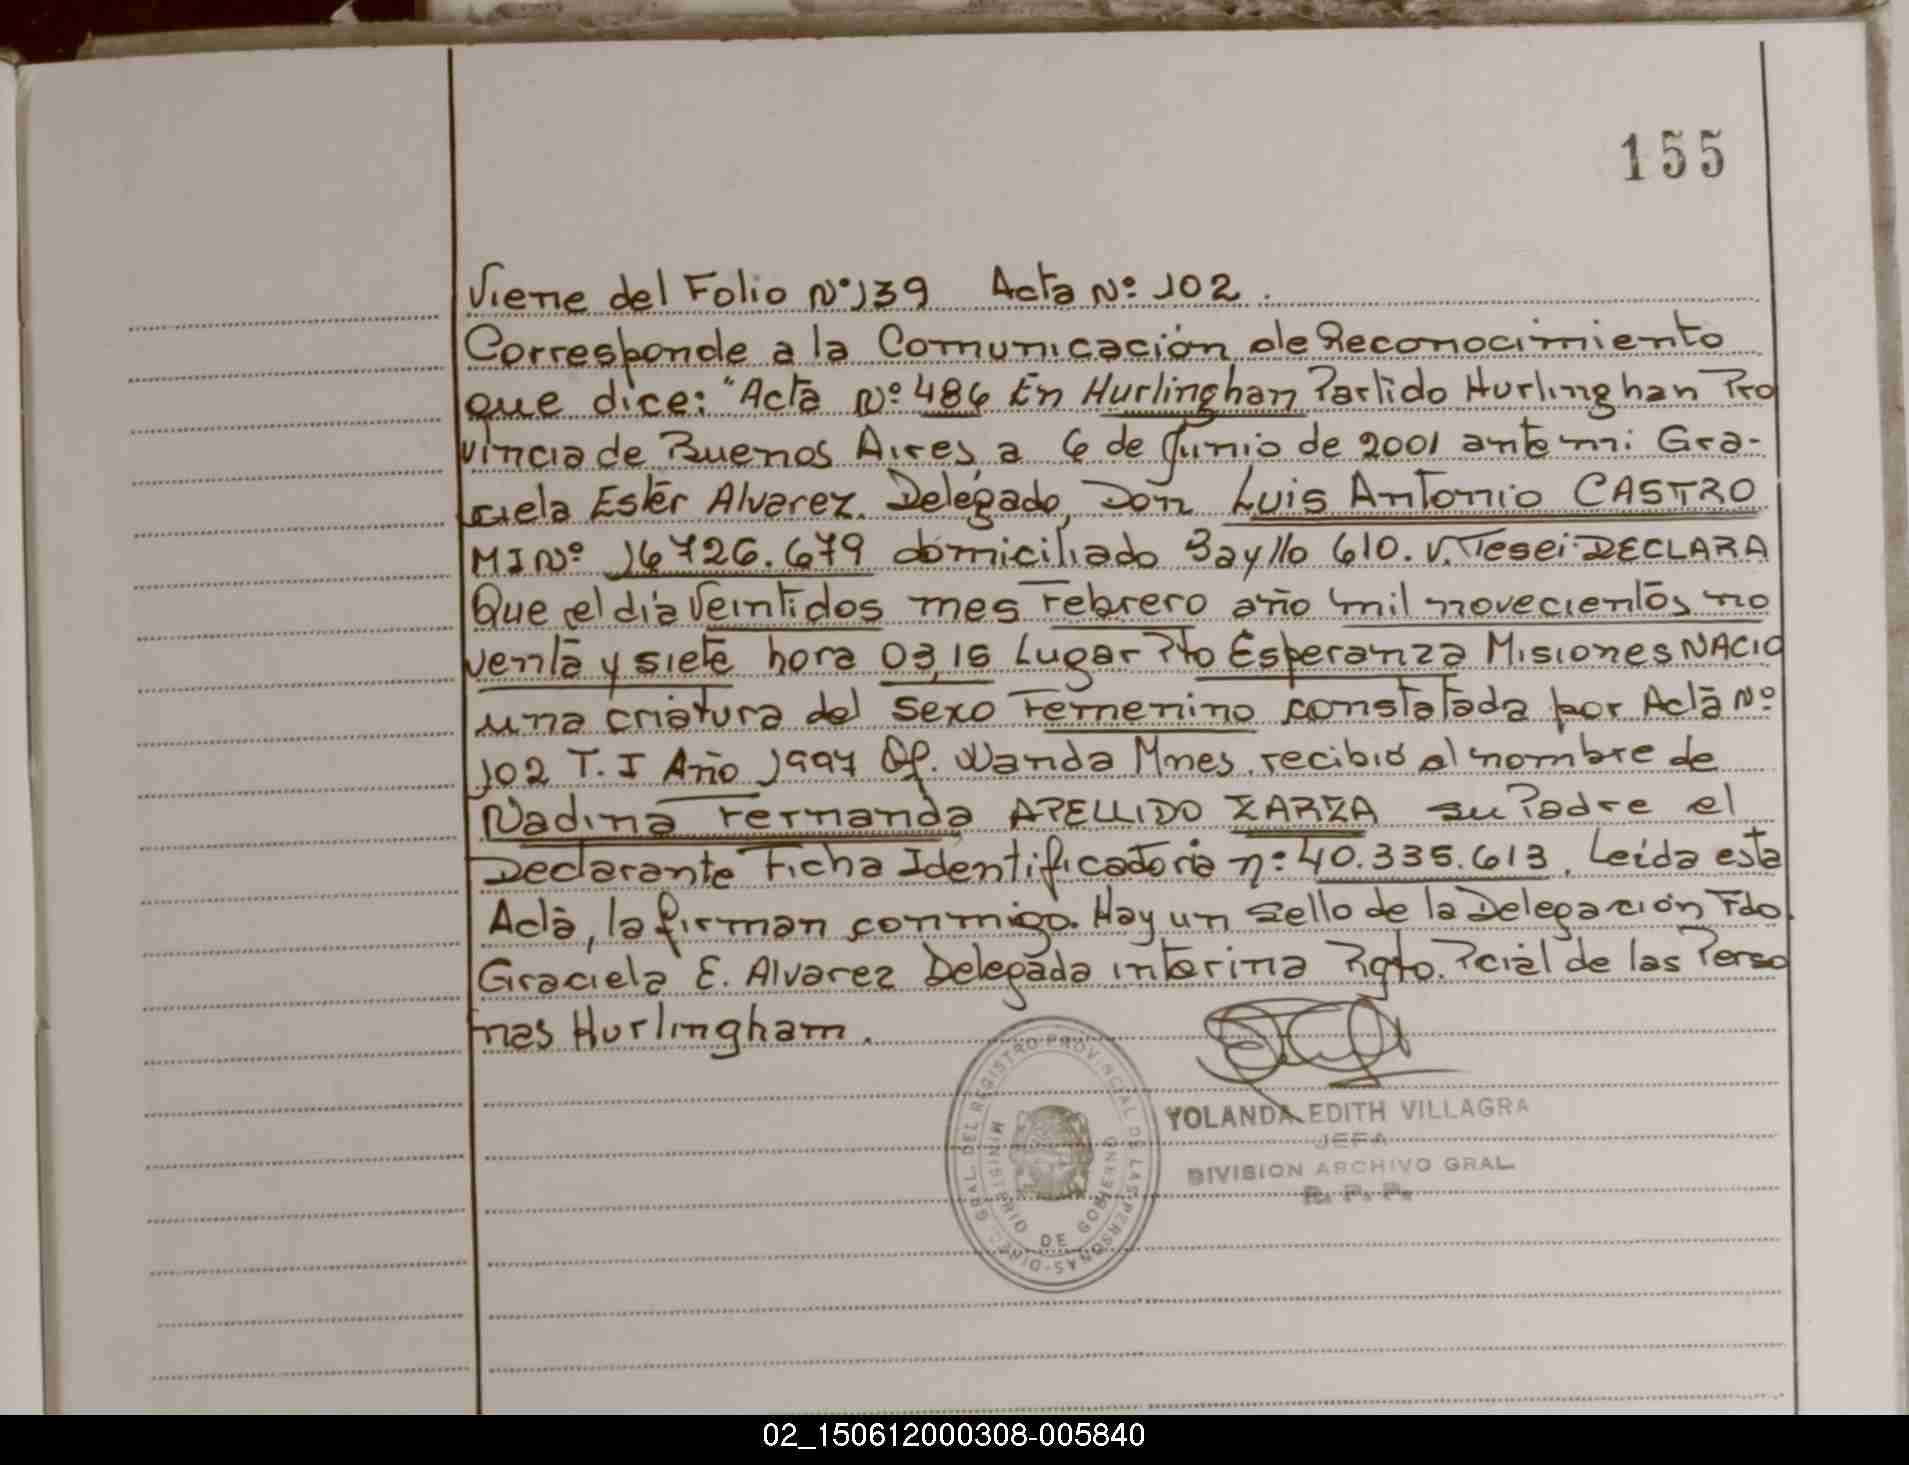 155
Viene del Folio Nº 139 Acta Nº 102.
Corresponde a la Comunicación de Reconocimiento
que dice: "Acta Nº 486 En Hurlinghan Partido Hurlinghan Pro
vincia de Buenos Aires, a 6 de Junio de 2001 ante mi: Gra-
ciela Ester Alvarez. Delegado, Don Luis Antonio CASTRO
MI Nº 16726.679 domiciliado Bayllo 610. V. Tesei DECLARA
Que el día Veintidos mes Febrero año mil novecientos no
venta y siete hora 03,15 Lugar Pto Esperanza Misiones NACIO
una criatura del sexo Femenino constatada por Acta Nº
102 T. I Año 1997 Of. Wanda Mnes. recibió el nombre de
Nadina Fernanda APELLIDO ZARZA su Padre el
Declarante Ficha Identificatoria nº 40.335.613. Leida esta
Acta, la firman conmigo. Hay un sello de la Delegación Fdo.
Graciela E. Alvarez Delegada interina Rgto. Pcial de las Perso
nas Hurlingham.
DIREC. GRAL. DEL REGISTRO PROVINCIAL DE LAS PERSONAS-
MINISTERIO DE GOBIERNO
YOLANDA EDITH VILLAGRA
JEFA
DIVISION ARCHIVO GRAL.
R. P. P.
02_150612000308-005840